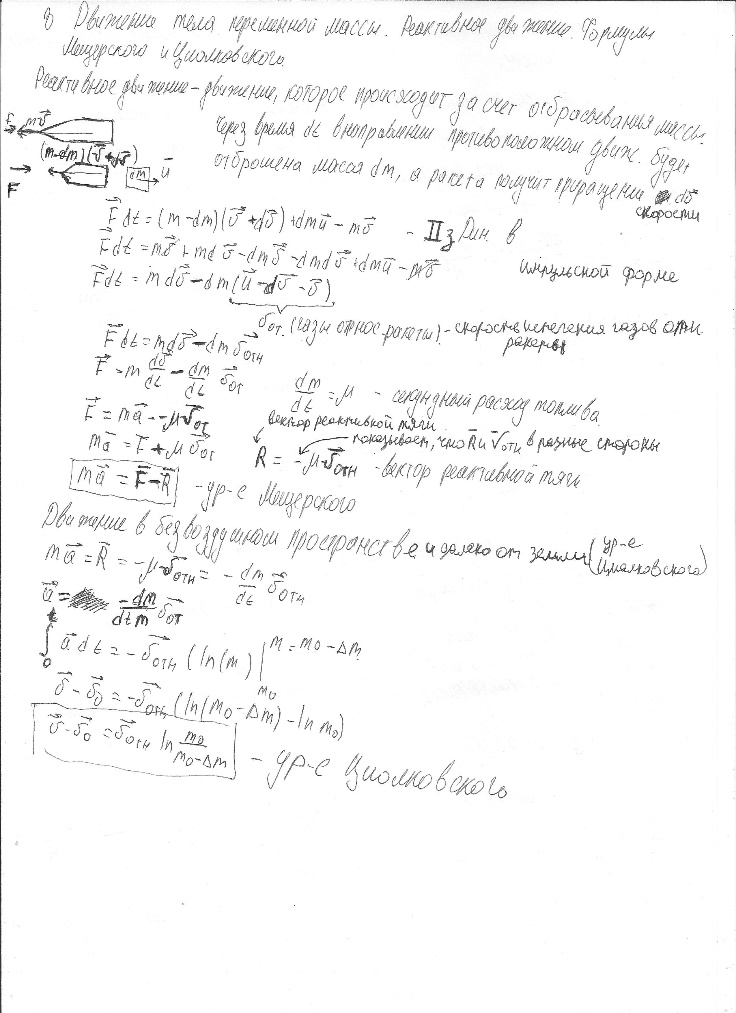 8 Движение тела переменной массы. Реактивное движение. Формулы
Мещерского и Циолковского.
Реактивное движение - движение, которое происходит за счет отбрасывания массы.
F⃗ mv⃗
Через время dt в направлении противоположном движ. будет
(m-dm)(v⃗+dv⃗) dm u⃗
отброшена масса dm, а ракета получит приращение dv⃗
F⃗
скорости
F⃗dt = (m-dm)(v⃗+dv⃗)+dmu⃗-mv⃗ - II з Дин. в
F⃗dt = mv⃗+mdv⃗-dmv⃗-dmdv⃗+dmu⃗-mv⃗ импульсной форме
F⃗dt = mdv⃗-dm(u⃗-dv⃗-v⃗)
v⃗от. (газы относ. ракеты) - скорость истечения газов отн
ракеты
F⃗dt = mdv⃗-dmv⃗отн
F⃗ = m dv⃗/dt - dm/dt v⃗от
dm/dt = μ - секундный расход топлива
F⃗ = ma⃗-μv⃗от
вектор реактивной тяги
показывает, что R⃗ и v⃗отн в разные стороны
ma⃗ = F⃗+μv⃗от
R = -μv⃗отн - вектор реактивной тяги
ma⃗ = F⃗-R⃗ - ур-е Мещерского
Движение в безвоздушном пространстве и далеко от земли (ур-е
Циолковского)
ma⃗ = R⃗ = -μv⃗отн = -dm/dt v⃗отн
a⃗ = -dm/dtm v⃗от
∫₀ᵗ a⃗dt = -v⃗отн (ln(m) |m=m0-Δm
m0
v⃗-v⃗0 = -v⃗отн (ln(m0-Δm)-ln m0)
v⃗-v⃗0 = v⃗отн ln m0/m0-Δm - ур-е Циолковского